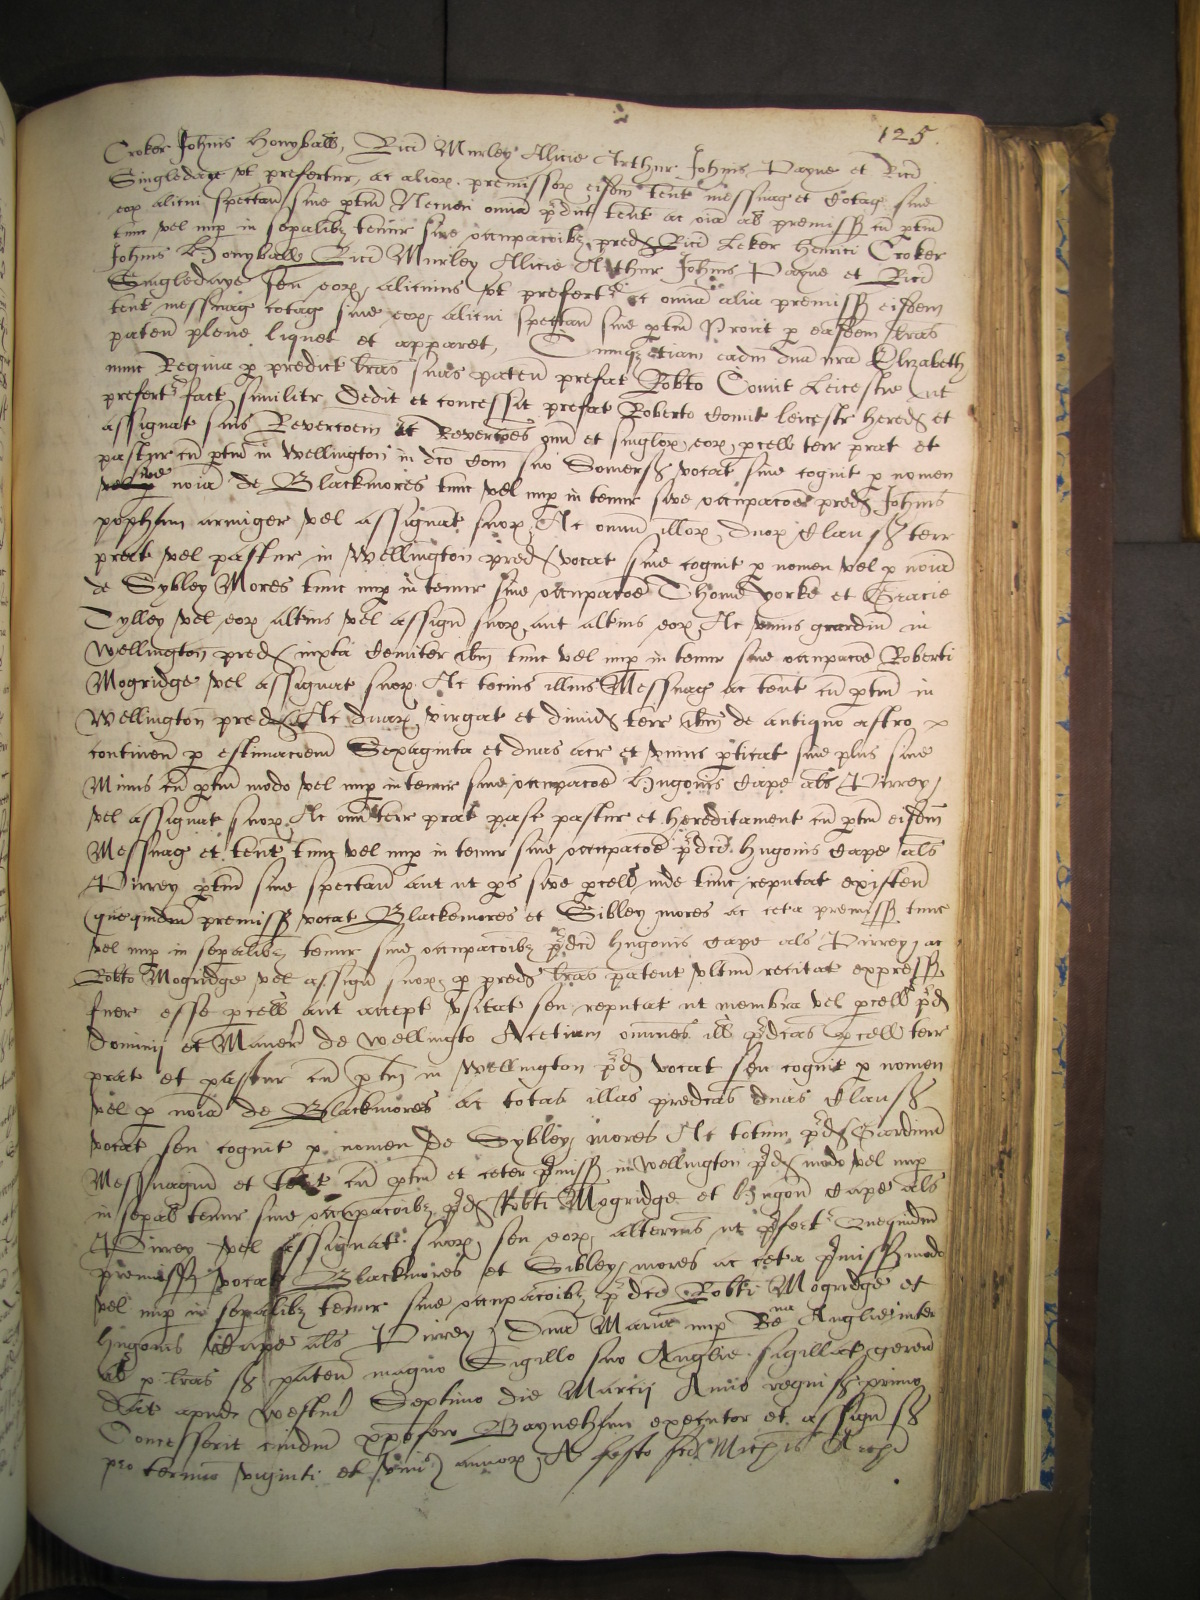 125
Croker Johnis Honyball, Ricī Murley Alicie Arthur Johnis Payne et Ricī
Singledaye ut prefertur, ac alior premissor eisdm tent messuag et Cotag sive
eor alicui spectan sive ptin Necnon omia pdict tent ac oia al premiss cū ptin
tunc vel nup in sepalibz tenur sive occupacoibz pred Ricī Leker Henrici Croker
Johnis Honyball Ricī Murley Alicie Arthur Johnis Payne et Ricī
Singledaye seu eor alicuius ut prefert ac omia alia premiss eisdem
tent messuag cotag sive eor alicui spectan sive ptin Prout p easdem lras
paten plene liquet et apparet, Cumqz etiam eadm dna nra Elizabeth
nunc Regina p predict lras suas paten prefat Robto Comit Leicestrie ut
prefert fact similitr Dedit et concessit prefat Roberto Comit leicestr hered et
assignat suis Revercoem et Revercoes omi et singlor eor pcell terr prat et
pastur cū ptin in Wellington in dco Com suo Somers vocat sive cognit p nomen
sive noia de Blackmores tunc vel nup in tenur sive occupacoe pred Johnis
popham armiger vel assignat suor Ac omi illor duor Claus terr
prat vel pastur in Wellington pred vocat sive cognit p nomen vel p noia
de Sybley Mores tunc nup in tenur sive occupacoe Thome yorke et Gracie
Tylley vel eor altius vel assign suor aut altius eor Ac unius gardin in
Wellington pred iuxta Cemiter ibm tunc vel nup in tenur sive occupacoe Roberti
Mogridge vel assignat suor Ac tocius illius Messuag ac tent cū ptin in
Wellington pred Ac duar virgat et dimid terr ibm de antiquo astro
continen p estimacoem Sexaginta et duas acr et unius pticat sive plus sive
Minus cū ptin modo vel nup in tenur sive occupacoe Hugonis Cape als Pirrey,
vel assignat suor Ac omi terr prat pasc pastur et hereditament cū ptin eisdm
Messuag et tent tunc vel nup in tenur sive occupacoe pdcī Hugonis Cape als
Pirrey ptin sive spectan aut ut ps sive pcell inde tunc reputat existen
quequidm premiss vocat Blackemores et Sibley mores ac ceta premiss tunc
vel nup in sepalibz tenur sive occupacoibz pdcī Hugonis Cape als Pirrey, ac
Robto Mogridge vel assign suor p pred lras patent ultim recitat express
fuer esse pcell aut accept usitat seu reputat ut membra vel pcell pd
Dominij et Maner de Wellingto Acetiam omnes ill pdcas pcell terr
prat et pastur cū ptin in Wellington pd vocat seu cognit p nomen
vel p noia de Blackmores ac totas illas predcas duas Claus
vocat seu cognit p nomen de Sybley mores Ac totum pd Gardinum
Messuagium et tent cū ptin et ceter pmiss in Wellington pd modo vel nup
in sepal tenur sive occupacoibz pd Robti Mogridge et Hugon Cape als
Pirrey vel assignat suor seu eor alterius ut pfert Quequidm
premiss vocat Blackmores et Sibley mores ac ceta pmiss modo
vel nup in sepalibz tenur sive occupacoibz pdcī Robti Mogridge et
Hugonis Cape als Pirrey Dna Maria nup Rena Anglie inter
al p lras s paten magno Sigillo suo Anglie sigillat geren
dat apud Westm Septimo die Marcij Anno regni s primo
Concesserit cuidm xpofero Bayneham executor et assign s
pro termio viginti et unius annor A festo sci Michis Archi